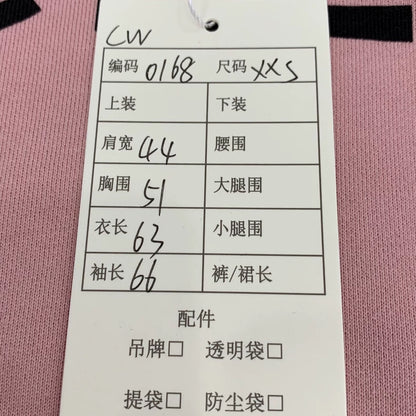 CW
编码 0168 尺码 XXS
上装 下装
肩宽 44 腰围
胸围 51 大腿围
衣长 63 小腿围
袖长 66 裤/裙长
配件
吊牌□ 透明袋□
提袋□ 防尘袋□